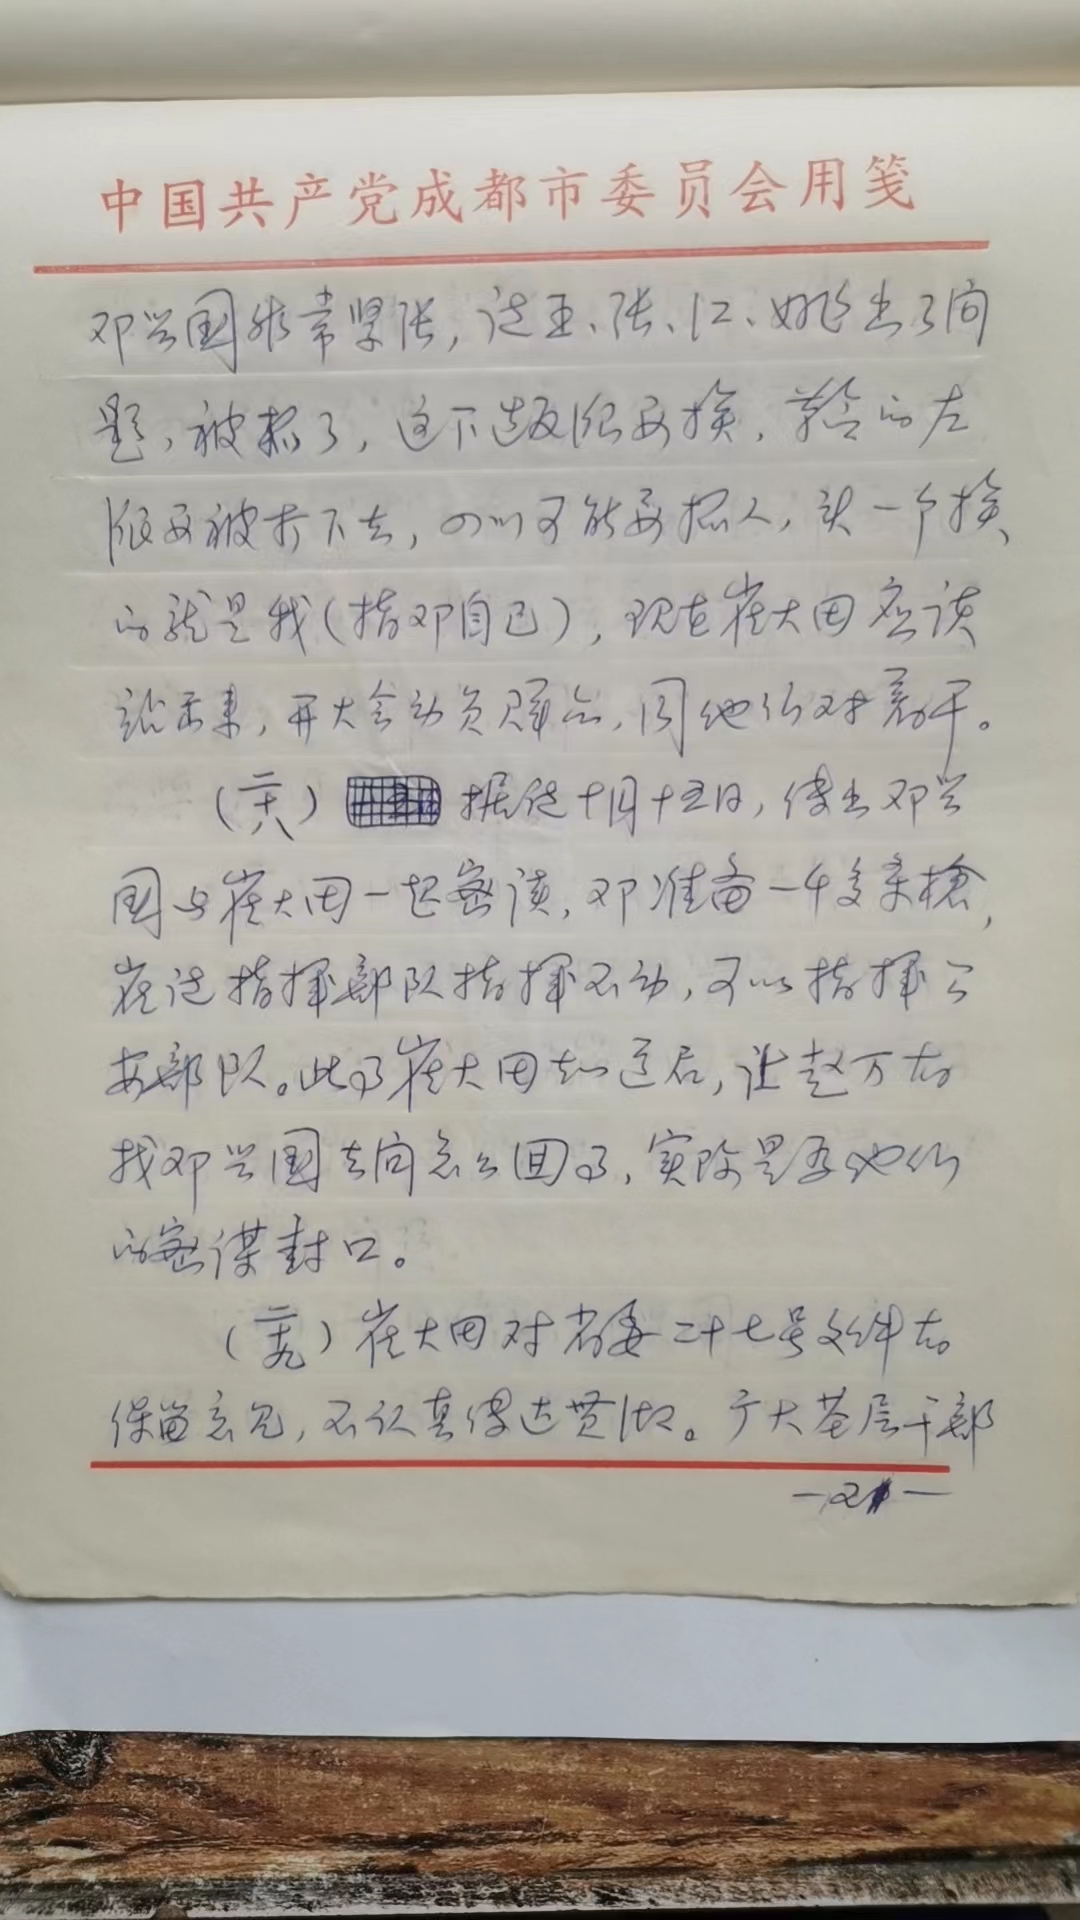 中国共产党成都市委员会用笺
邓兴国非常紧张，说王、张、江、姚出了问
题，被抓了，这下造反派要挨，革命的左
派要被打下去，四川可能要抓人，头一个挨
的就是我（指邓自己），现在崔大田应该
站出来，开大会动员群众，同他们对着干。
（二十八）据说十月十五日，传出邓兴
国与崔大田一起密谈，邓准备一千多条槍，
崔说指挥部队指挥不动，可以指挥公
安部队。此事崔大田知道后，让赵万
找邓兴国去问怎么回事，实际是为他们
的密谋封口。
（二十九）崔大田对省委二十七号文件有
保留意见，不认真传达贯彻。广大基层干部
—2—